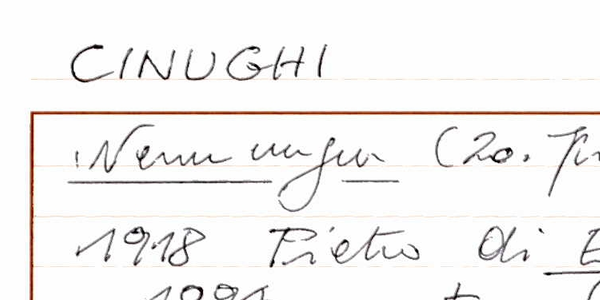 CINUGHI
Nennungen (20. Jh
1918 Pietro di E
1991